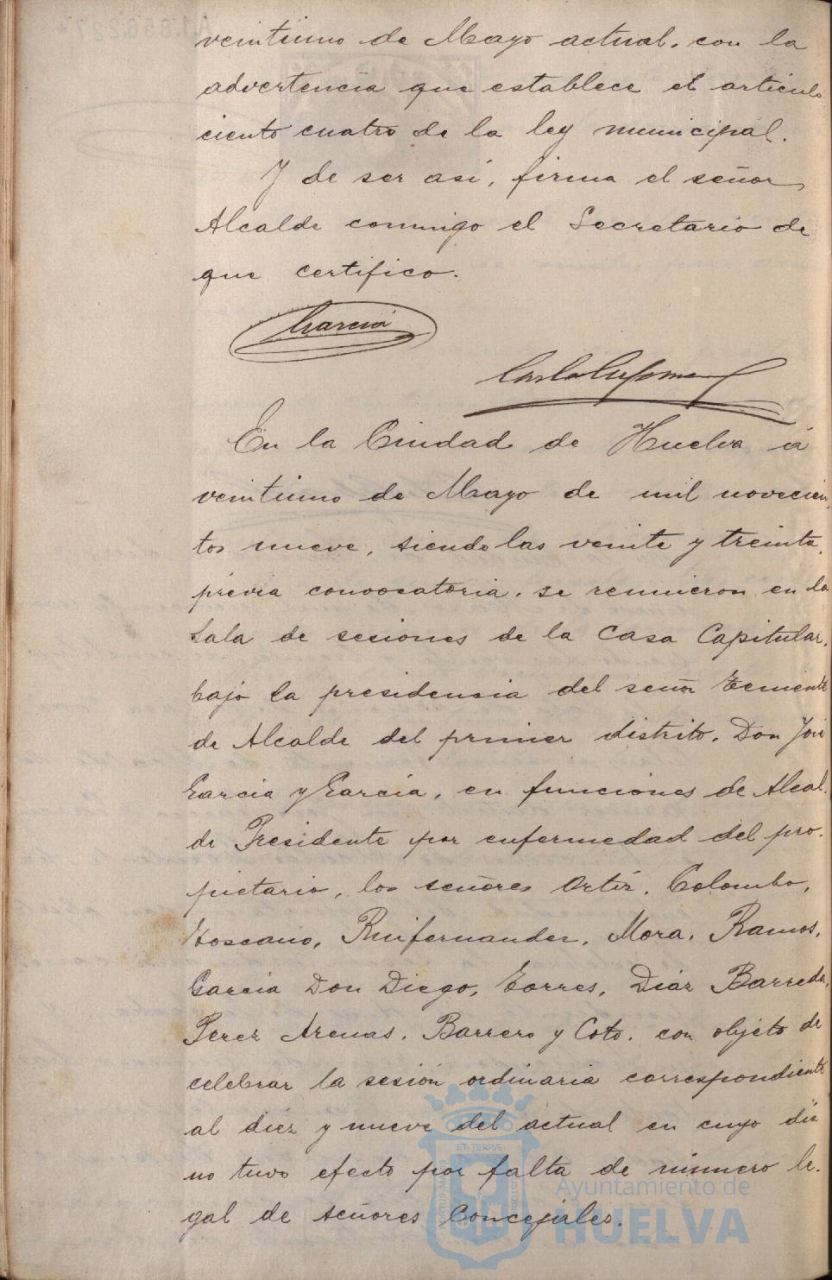 veintiuno de Mayo actual, con la
advertencia que establece el artículo
ciento cuatro de la ley municipal.
Y de ser así, firma el señor
Alcalde conmigo el Secretario de
que certifico.
García
En la Ciudad de Huelva á
veintiuno de Mayo de mil novecien
tos nueve, siendo las veinte y treinta,
prévia convocatoria, se reunieron en la
Sala de sesiones de la Casa Capitular,
bajo la presidencia del señor Teniente
de Alcalde del primer distrito, Don José
García y García, en funciones de Alcal-
de Presidente por enfermedad del pro-
pietario, los señores Ortíz, Colombo,
Toscano, Ruifernandez, Mora, Ramos,
García Don Diego, Torres, Diáz Barreda,
Perez Arenas, Barrero y Coto, con objeto de
celebrar la sesión ordinaria correspondiente
al diéz y nueve del actual en cuyo día
no tuvo efecto por falta de número le-
gal de señores Concejales.
Ayuntamiento de
HUELVA